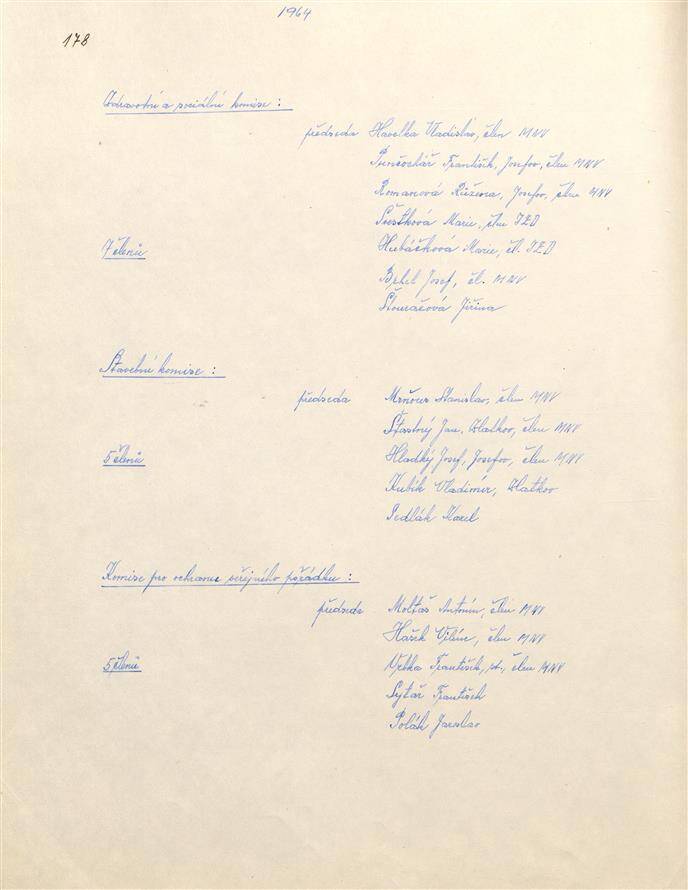 1964
178
Zdravotní a sociální komise :
předseda Havelka Vladislav, člen MNV
Punčochář František, Josefov, člen MNV
Romanová Růžena, Josefov, člen MNV
Šestková Marie, člen JED
7 členů Hubáčková Marie, čl. JED
Bébel Josef, čl. MNV
Štouračová Jiřina
Stavební komise :
předseda Stanislav, člen MNV
Šťastný Jan, Zlatkov, člen MNV
5 členů Hladký Josef, Josefov, člen MNV
Kubík Vladimír, Zlatkov
Sedlák Karel
Komise pro ochranu veřejného pořádku :
předseda Moltaš Antonín, člen MNV
Hašek Vilém, člen MNV
5 členů Vrbka František, st., člen MNV
Sytař František
Polák Jaroslav